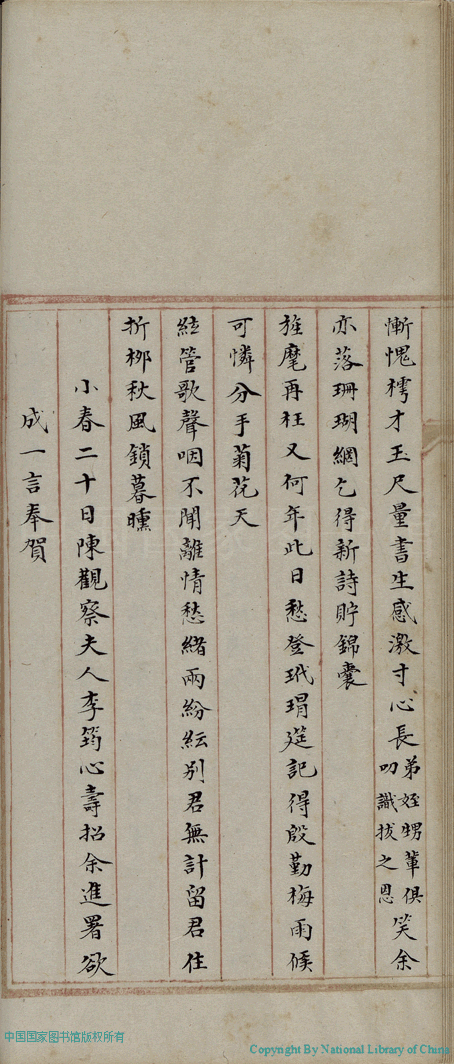 慚愧樗才玉尺量書生感激寸心長弟姪甥輩俱叨識拔之恩笑余
亦落珊瑚網乞得新詩貯錦囊
旌麾再枉又何年此日愁登玳瑁筵記得殷勤梅雨候
可憐分手菊花天
絃管歌聲咽不聞離情愁緒兩紛紜別君無計留君住
折栁秋風鎖暮曛
小春二十日陳觀察夫人李筠心壽招余進署欲
成一言奉賀
中国国家图书馆版权所有
Copyright By National Library of China